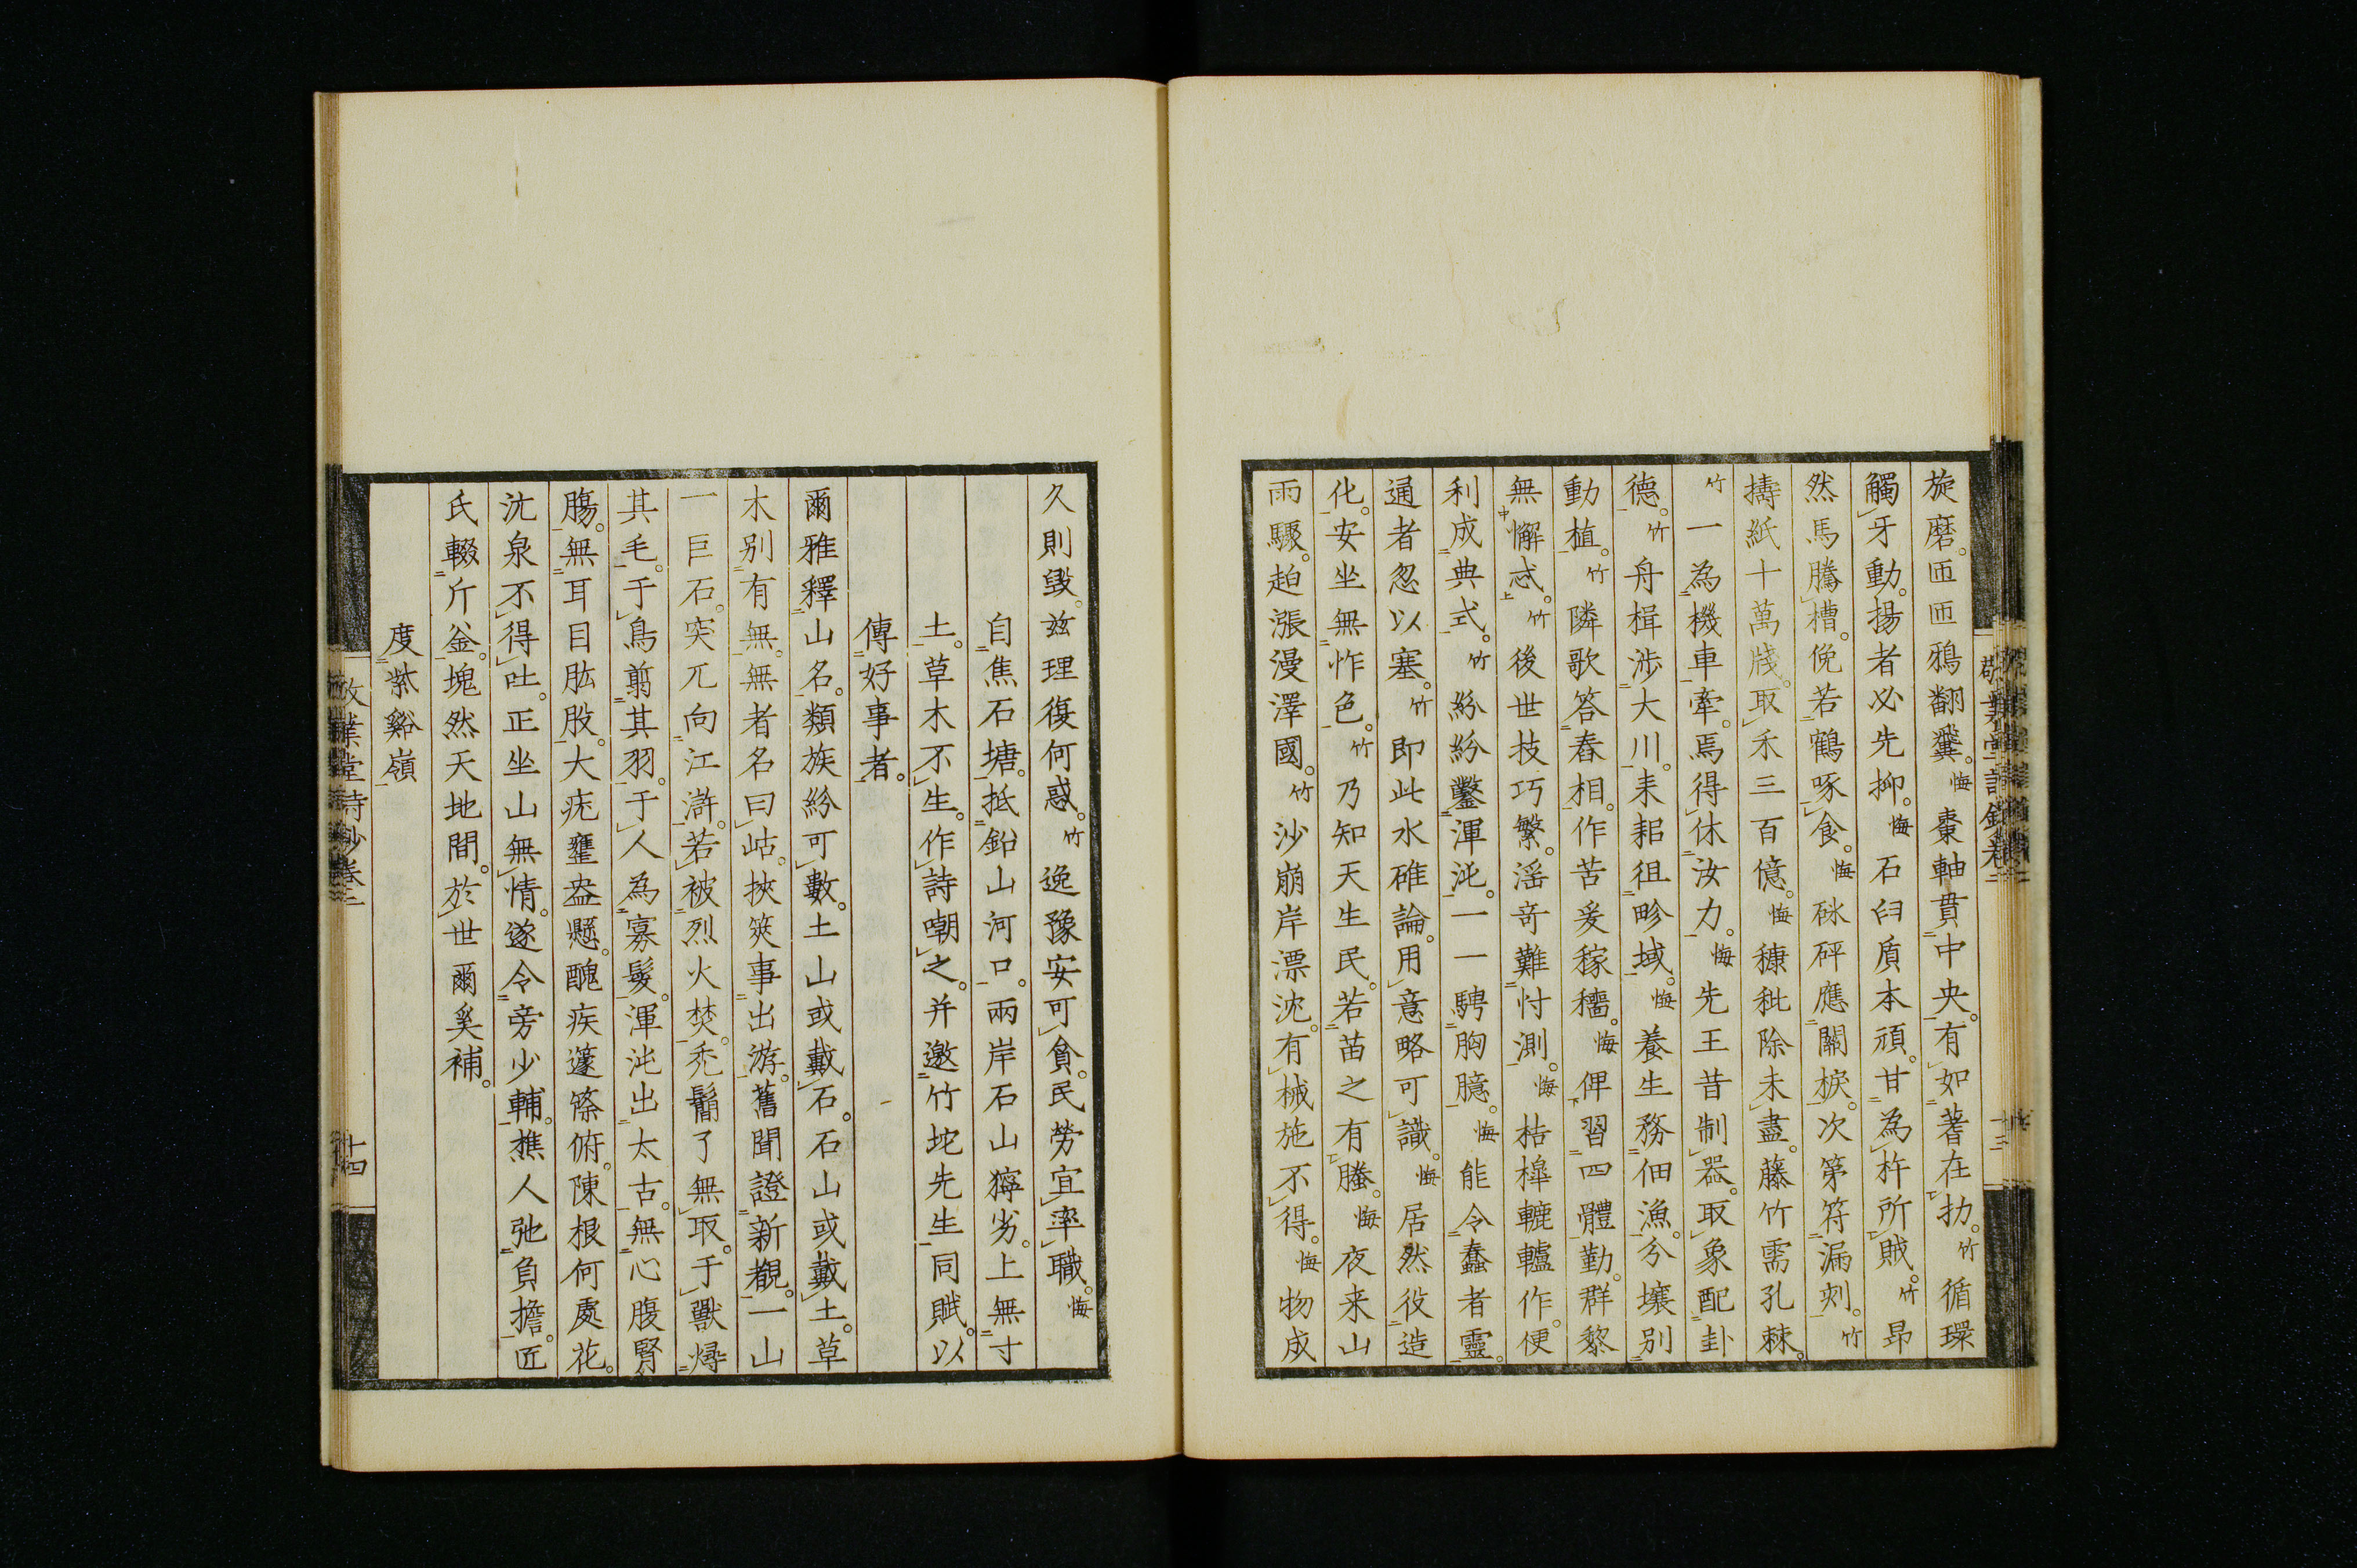 旋磨。匝匝鴉翻糞。悔棗軸貫中央。有如著在扐。竹循環
觸牙動。揚者必先抑。悔石臼質本頑。甘為杵所賊。竹昂
然馬騰槽。俛若鶴啄食。悔砯砰應關棙。次第符漏刻。竹
擣紙十萬牋。取禾三百億。悔糠秕除未盡。藤竹需孔棘。
竹一為機車牽。焉得休汝力。悔先王昔制器。取象配卦
德。竹舟楫涉大川。耒耜徂畛域。悔養生務佃漁。分壤別
動植。竹隣歌答舂相。作苦爰稼穡。悔俾習四體勤。群黎
無懈忒。竹後世技巧繁。滛奇難忖測。悔桔橰轆轤作。便
利成典式。竹紛紛鑿渾沌。一一騁胸臆。悔能令蠢者靈。
通者忽以塞。竹即此水碓論。用意略可識。悔居然役造
化。安坐無怍色。竹乃知天生民。若苗之有螣。悔夜来山
雨驟。起漲漫澤國。竹沙崩岸漂沈。有械施不得。悔物成
久則毀。茲理復何惑。竹逸豫安可貪。民勞宜率職。悔
自焦石塘。抵鉛山河口。兩岸石山獰劣。上無寸
土。草木不生。作詩嘲之。并邀竹垞先生同賦。以
傳好事者。
爾雅釋山名。類族紛可數。土山或戴石。石山或戴土。草
木别有無。無者名曰峘。挾筴事出游。舊聞證新覩。一山
一巨石。突兀向江滸。若被烈火焚。禿鬝了無取。于獸燖
其毛。于鳥翦其羽。于人為寡髮。渾沌出太古。無心腹腎
腸。無耳目肱股。大疣甕盎懸。醜疾蘧篨俯。陳根何處花。
沈泉不得吐。正坐山無情。遂令旁少輔。樵人弛負擔。匠
氏輟斤釜。塊然天地間。於世爾奚補。
度紫谿嶺
敬業堂詩鈔卷二
十四